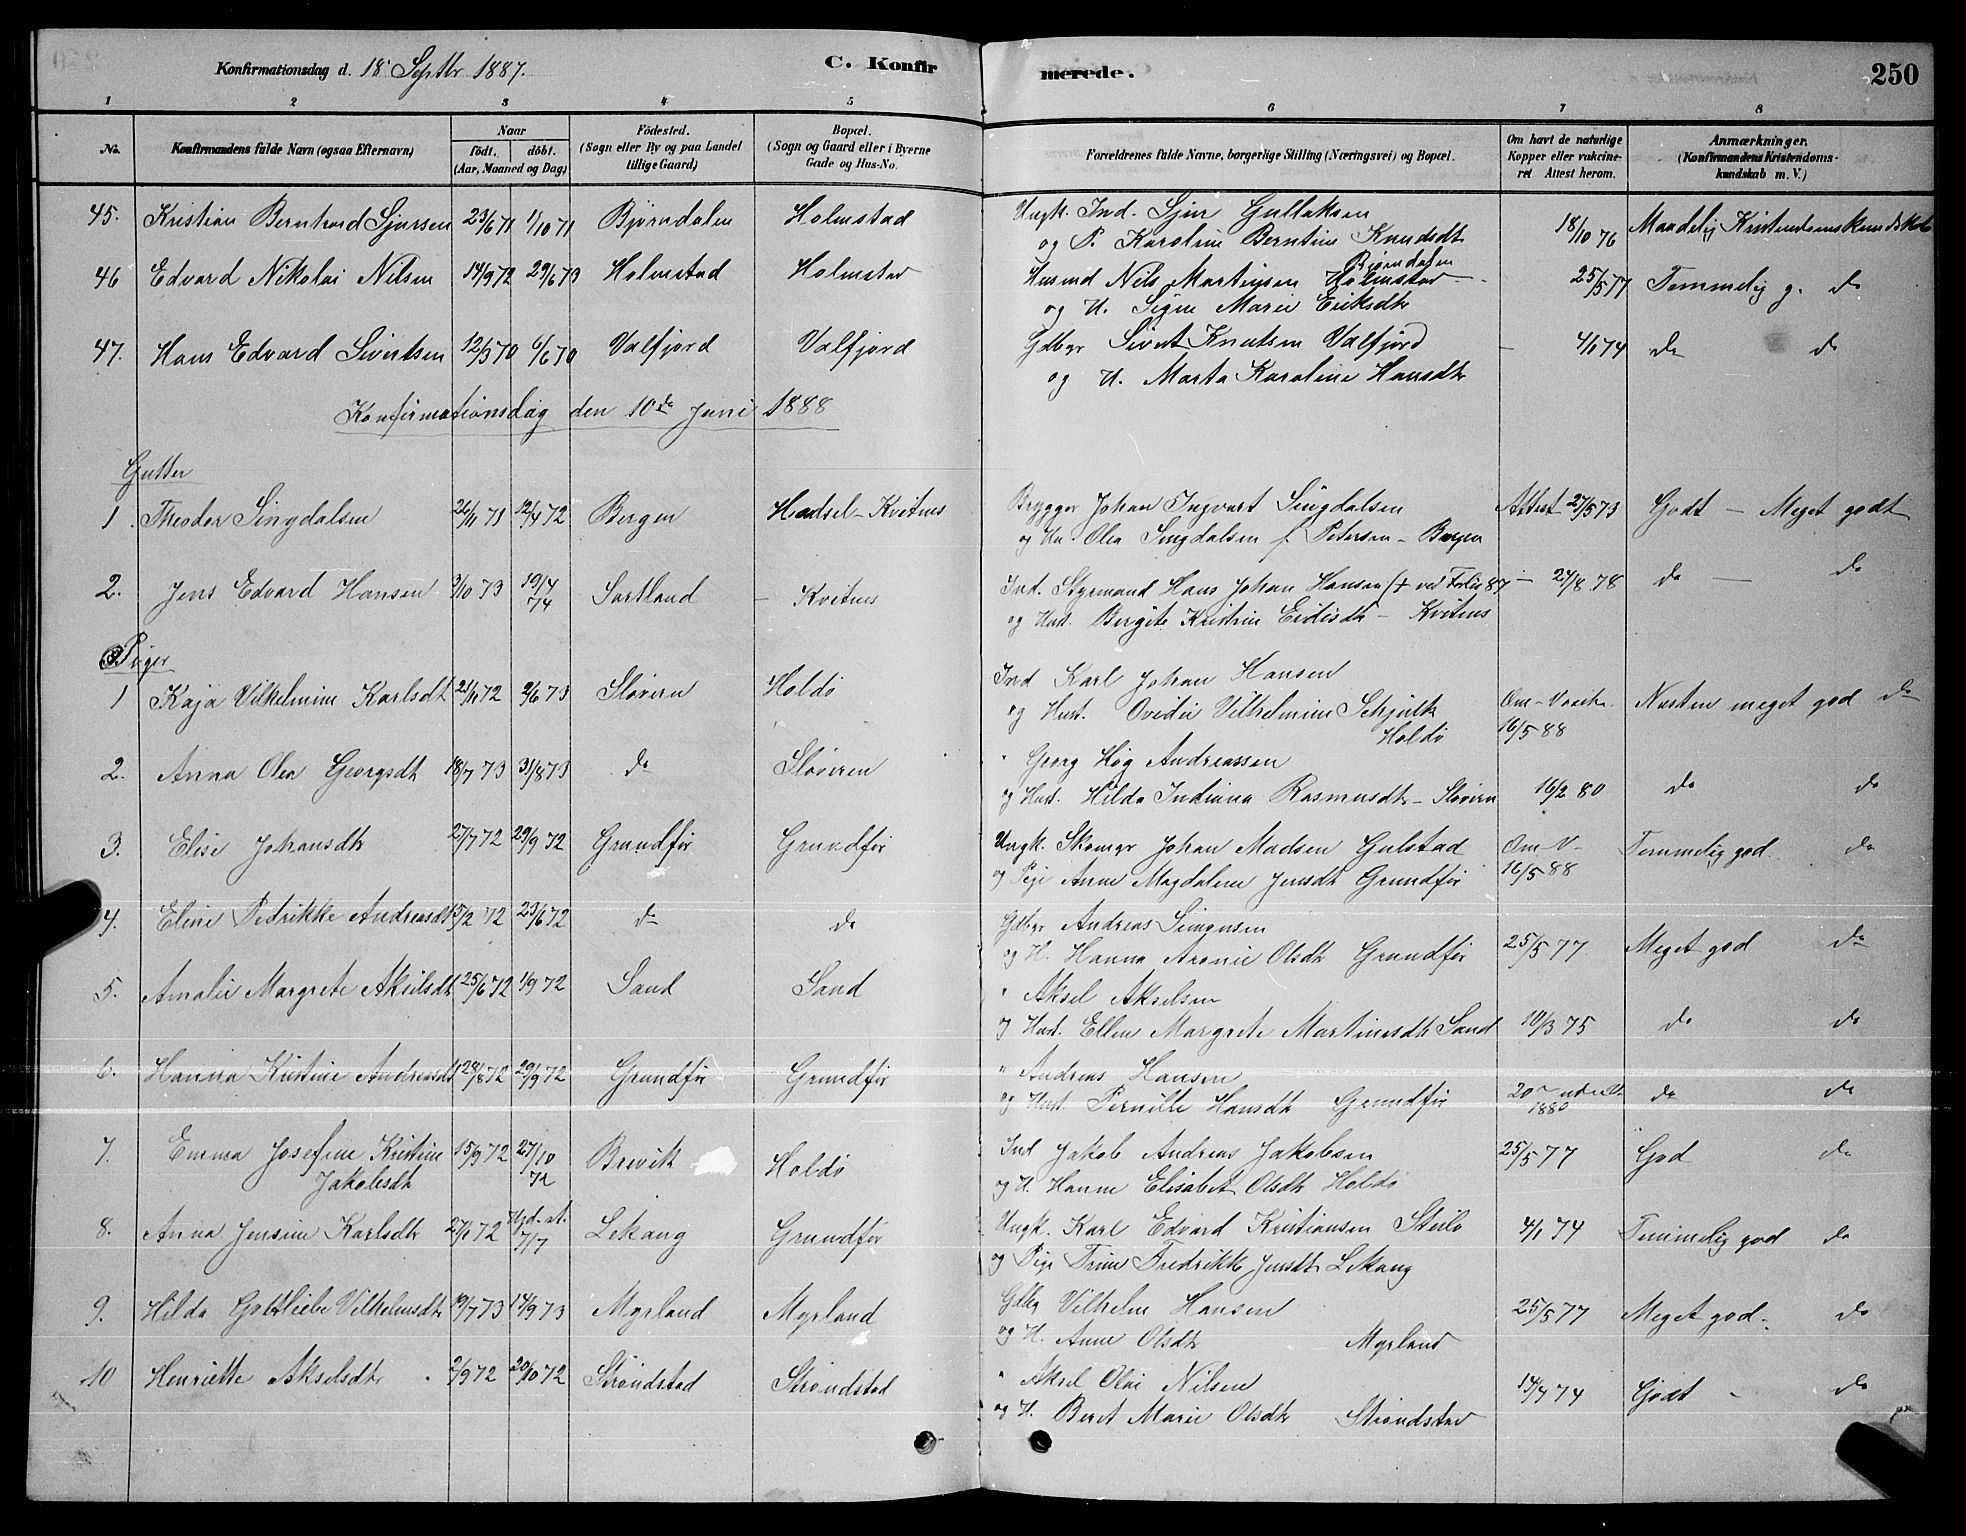 Konfirmationsdag d. 18 Septbr 1887. C. Konfirmerede. 250
1 2 3 4 5 6 7 8
No. Konfirmandens fulde Navn (ogsaa Efternavn) Naar födt. döbt. (Aar, Maaned og Dag) Födested. (Sogn eller By og paa Landet tillige Gaard) Bopæl. (Sogn og Gaard eller i Byerne Gade og Hus-No. Forældrenes fulde Navne, borgerlige Stilling (Næringsvei) og Bopæl. Om havt de naturlige Kopper eller vakcineret Attest herom. Anmærkninger. (Konfirmandens Kristendomskundskab m. V.)
45. Kristian Bernhard Sjursen 23/6 71 1/10 71 Bjørndalen Holmstad Ungk. Ind. Sjur Gullaksen 18/10 76 Maadelig Kristendomskundskab
og P. Karoline Berntine Knudsdtr Bjørndalen
46 Edvard Nikolai Nilsen 14/9 72 29/6 73 Holmstad Holmstad Husmd Nils Martinsen Holmstad 25/5 77 Temmelig g. do
og H. Signe Marie Eriksdtr
47. Hans Edvard Sivertsen 12/3 70 6/6 70 Valfjord Valfjord Gdbgr Sivert Knutsen Valfjord 4/1 74 do do
og H. Marta Karoline Hansdtr
Konfirmationsdag den 10de Juni 1888
Gutter
1. Theodor Singdalsen 71 12/4 72 Bergen Hadsel - Kvitnes Brygger Johan Ingvart Singdalsen Attest 27/5 73 Godt - Meget godt
og Hu. Olea Singdalsen f. Petersen - Bergen
2. Jens Edvard Hansen 3/10 73 19/4 74 Sortland - Kvitnes Ind. Styrmand Hans Johan Hansen († ved Forlis 87 - 27/8 78 do - do
og Hust. Bergite Kristine Eidisdtr - Kvitnes
Piger
1 Kaja Vilhelmine Karlsdt 21/11 72 2/6 73 Sløveren Holdö Ind Karl Johan Hansen
og Hust. Ovedie Vilhelmine Schjølk Holdö Om-Vacik. 16/5 88 Næsten meget god do
2. Anna Olea Georgsdt 18/7 73 31/8 73 do Sløveren " Georg Høg Andreassen
og Hust. Hilda Indiana Rasmusdtr - Sløveren 16/2 80 do do
3. Elise Johansdtr 27/7 72 29/9 72 Grundför Grundför Ungk. Skomgr Johan Madsen Gulstad Om-V- 16/5 88 Temmelig god. do
og Pige Anne Magdalena Jensdt Grundför
4. Eline Pedrikke Andreasdt 15/2 72 23/6 72 do do Gdbgr Andreas Simonsen
og H. Hanna Aronie Olsdtr Grundför 25/5 77 Meget god do
5. Amalie Margrete Akselsdt 25/6 72 1/9 72 Sand Sand " Aksel Akselsen
og Hust. Ellen Margrete Martinusdtr Sand 10/3 75 do do
6. Hanna Kristine Andreasdt 28/8 72 29/9 72 Grundför Grundför " Andreas Hansen
og Hust. Pernille Hansdtr Grundför 1880 do do
7. Emma Josefine Kristine Jakobsdtr 15/9 72 27/10 72 Brevik Holdö Ind Jakob Andreas Jakobsen 25/5 77 God do
og H. Hanne Elisabet Olsdtr Holdö
8. Anna Jensine Karlsdtr 27/1 72 Hjd. st. 7/7 Lekang Grundför Ungk. Karl Edvard Kristiansen Steilo 4/1 74 Temmelig god do
og Pige Trine Fredrikke Jensdt Lekang
9. Hilda Gottliebe Vilhelmsdtr 19/7 73 14/9 73 Myrland Myrland Gdbg Vilhelm Hansen 25/5 77 Meget god. do
og H. Anne Olsdtr Myrland
10 Henriette Akselsdtr 2/9 72 20/10 72 Strøndstad Strøndstad " Aksel Olai Nilsen 14/7 74 Godt - do
og H. Beret Marie Olsdtr Strøndstad